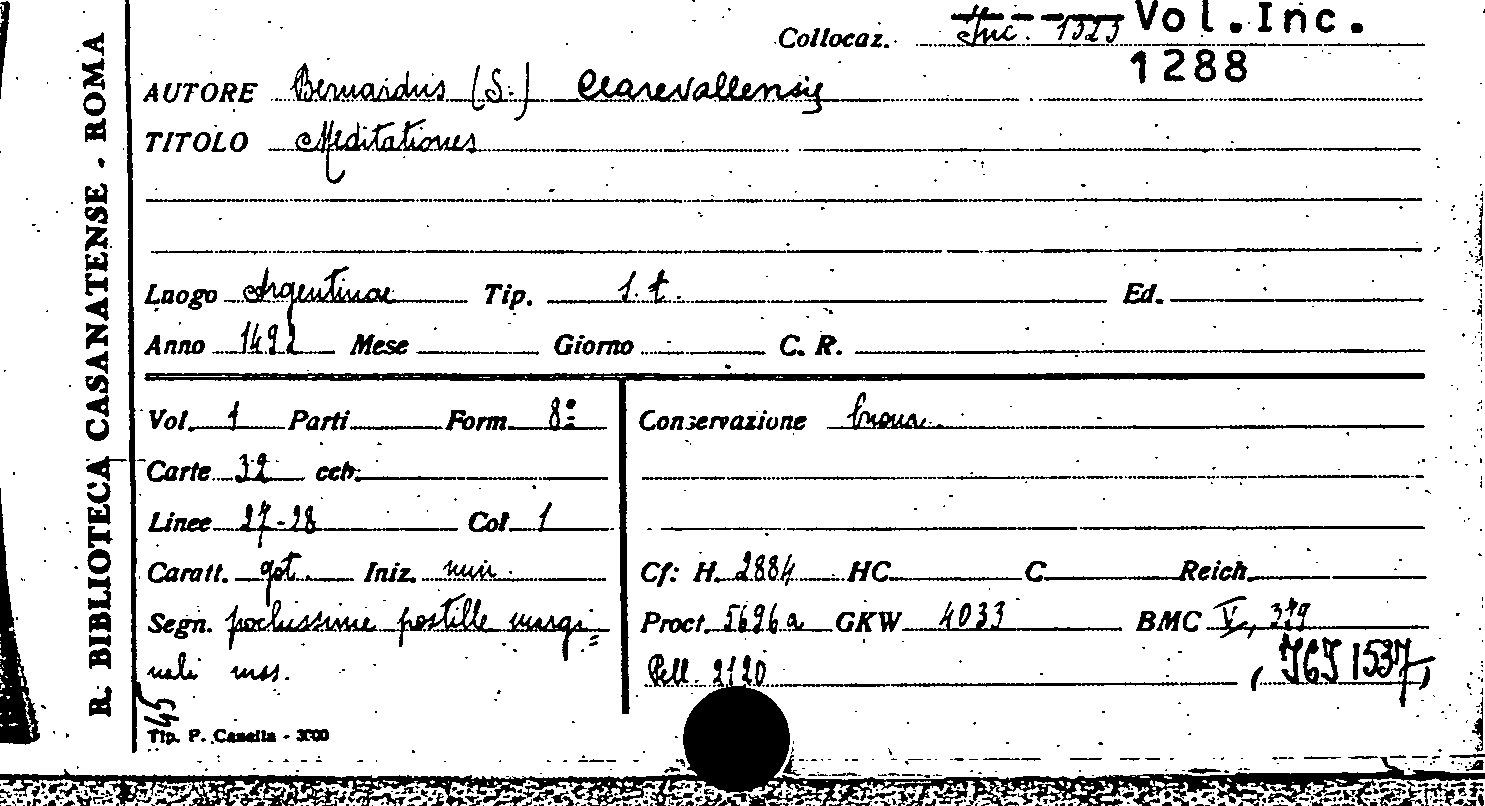 R. BIBLIOTECA CASANATENSE - ROMA
Collocaz. Inc. 1323 Vol.Inc.
1288
AUTORE Bernardus (S.) Clarevallensis
TITOLO Meditationes
Luogo Argentinae Tip. s.t. Ed.
Anno 1492 Mese Giorno C. R.
Vol. 1 Parti Form. 8º Conservazione buona
Carte 32 ccb.
Linee 27-28 Col. 1
Caratt. got. Iniz. min. Cf: H. 2884 HC. C. Reich.
Segn. pochissime postille margi= Proct. 5696a GKW 4033 BMC V, 379
nali mss. Pell. 2120 (IGI 1537)
45
Tip. P. Casella - 3000